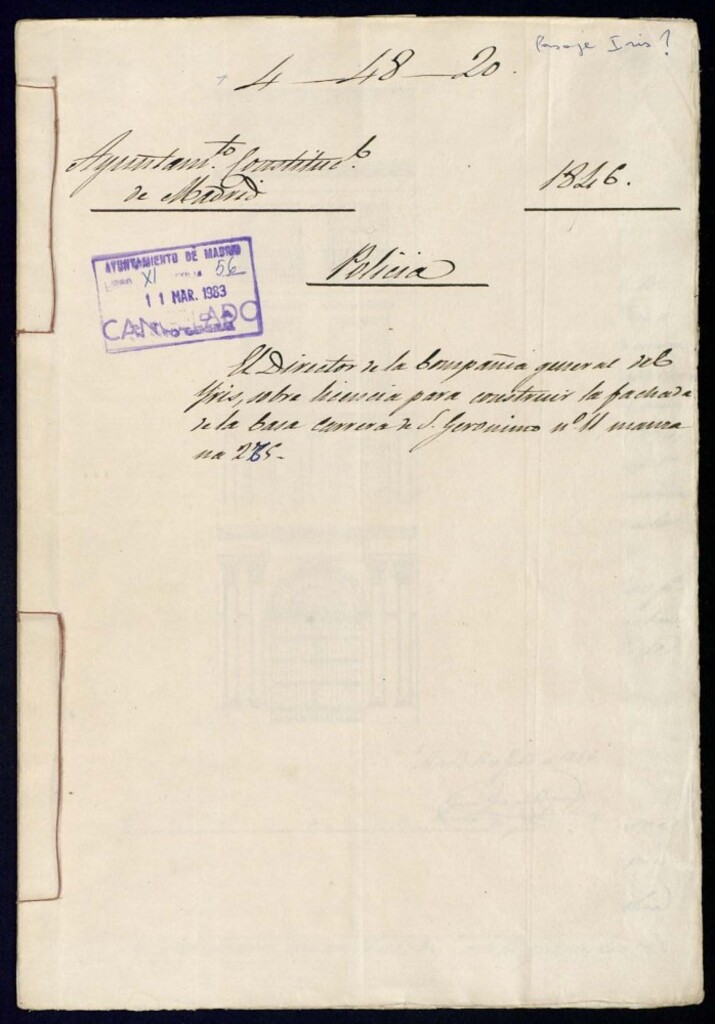 Pasaje Iris?
4-48-20.
Ayuntam.to Constituc.l
de Madrid
1846.
AYUNTAMIENTO DE MADRID
XI 56
11 MAR. 1983
Policia
El Director de la Compañia general del
Yris, sobre licencia para construir la fachada
de la Casa carrera de S. Geronimo nº 11 manza
na 265-